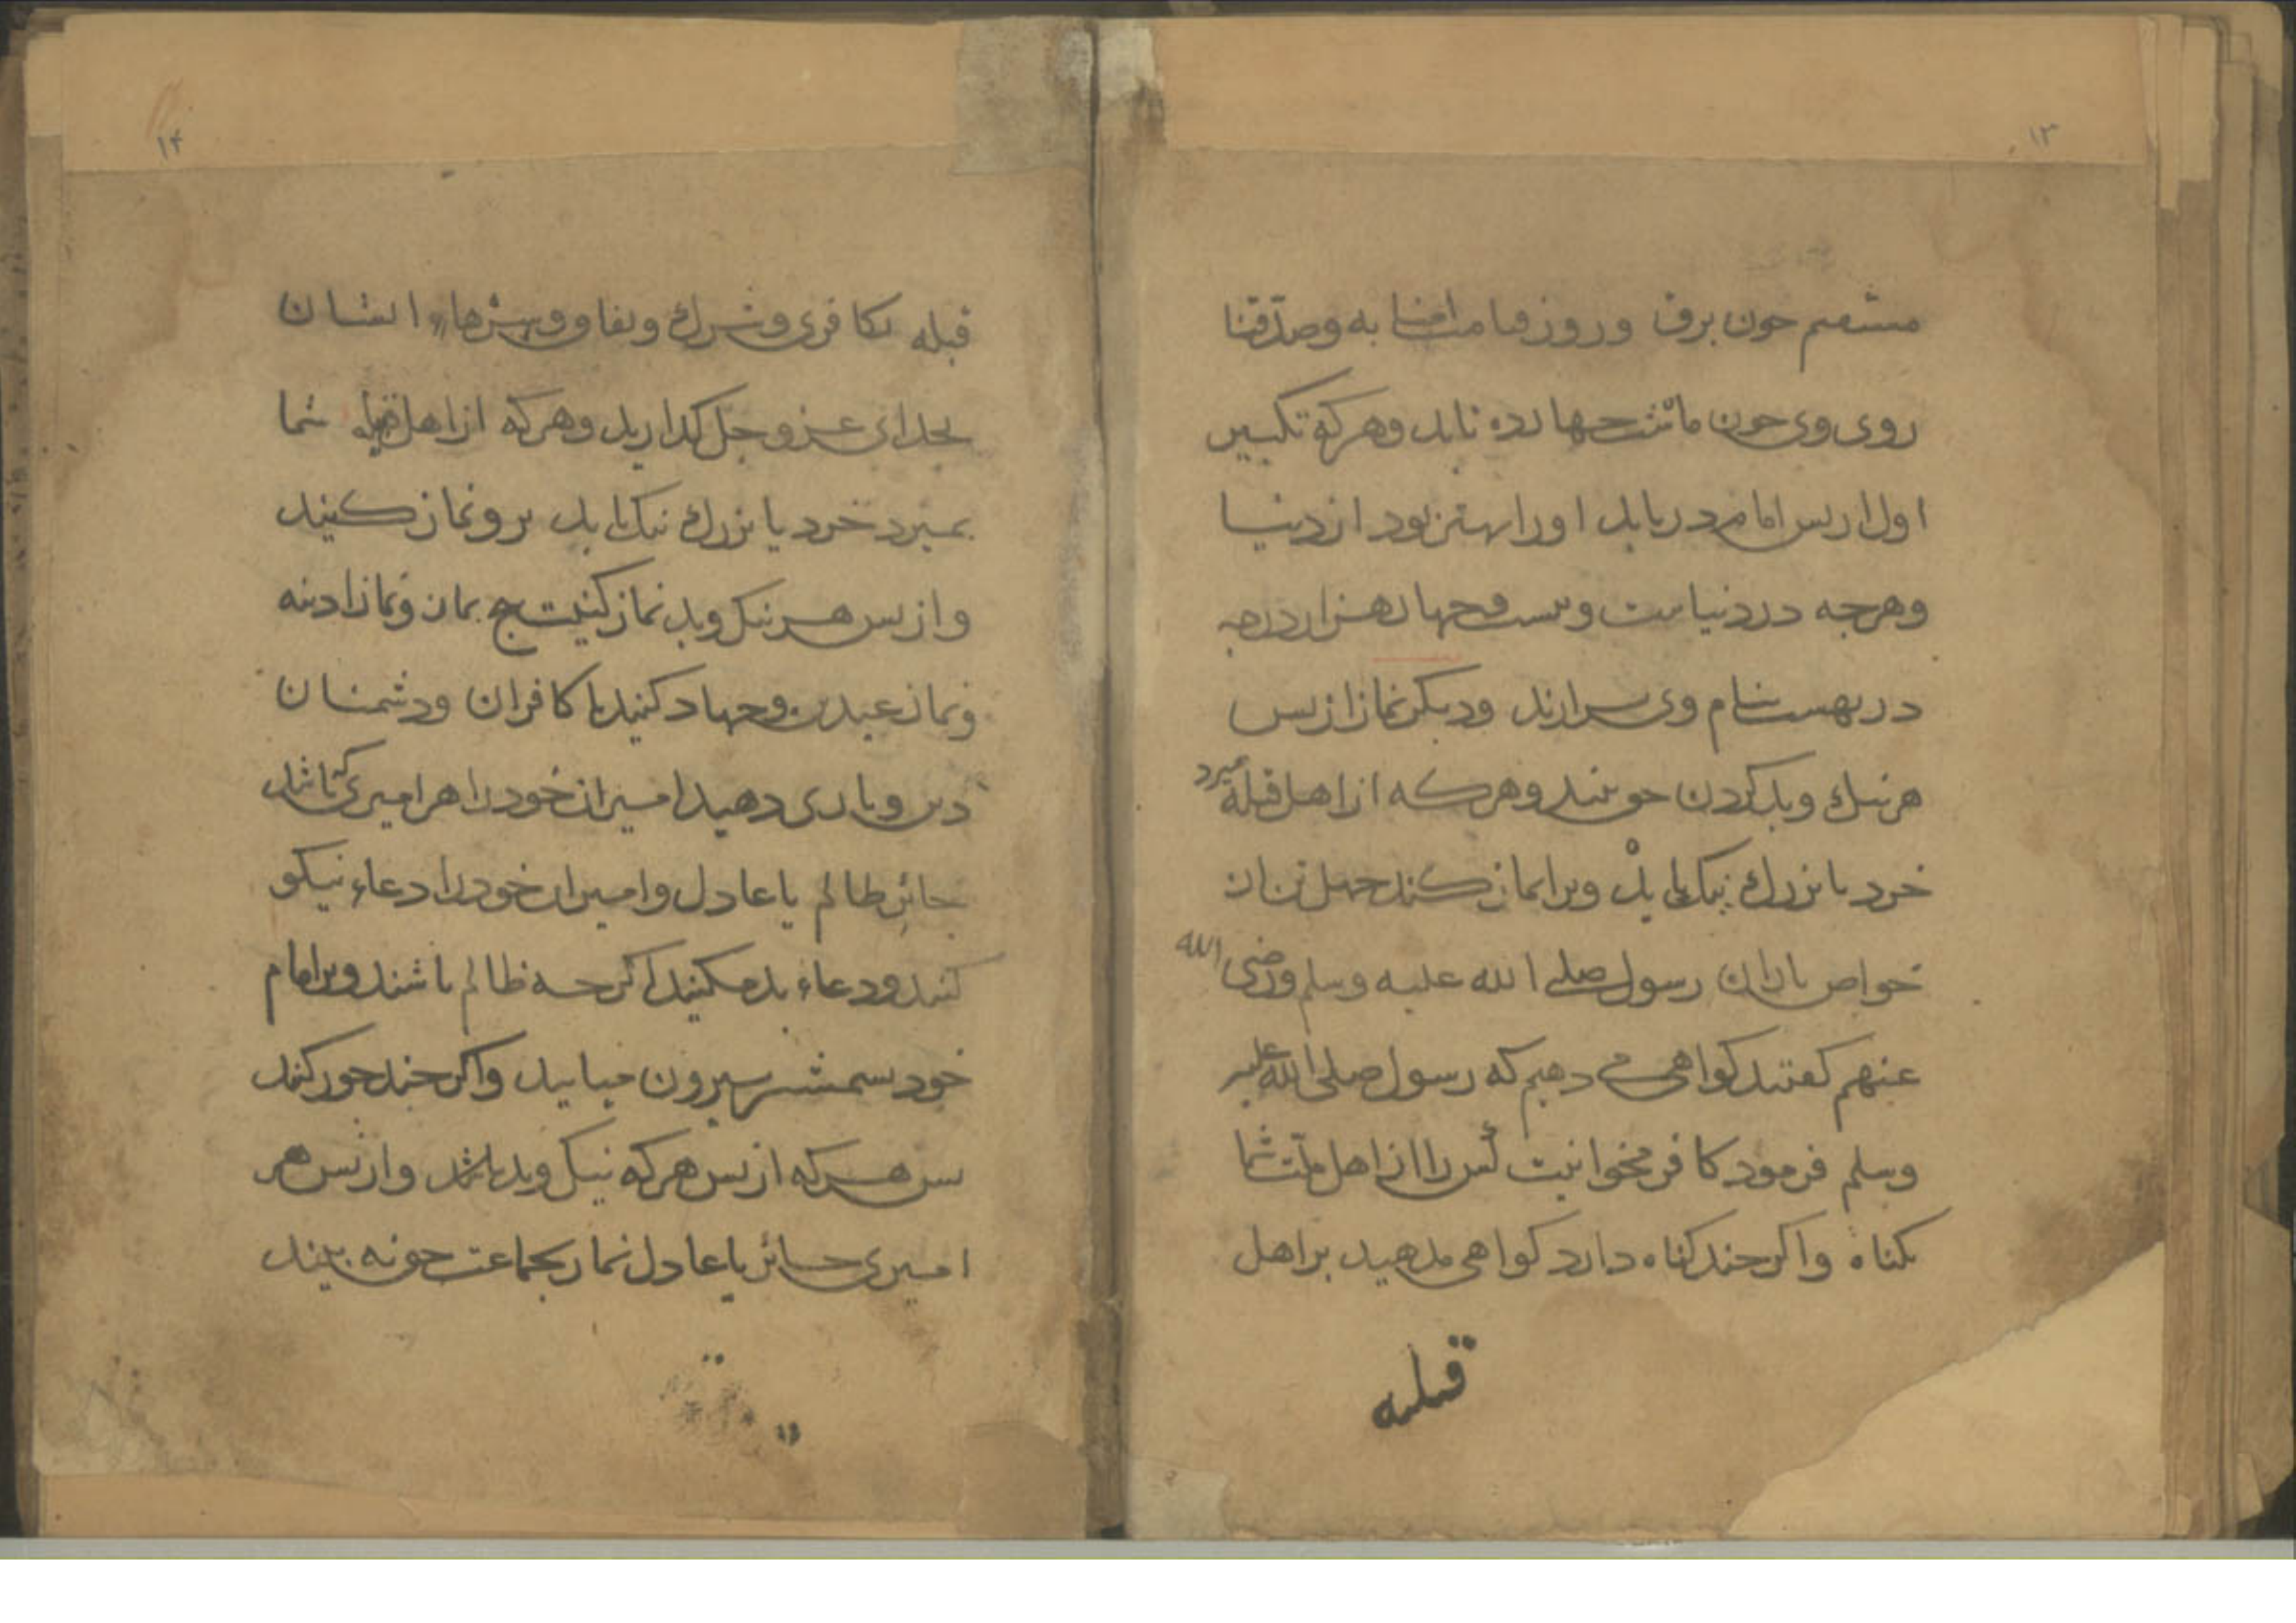 ۱۳
مستقیم چون برق و روز قیامت امنا به وصدّقنا
روی وی چون ماه شب چهارده تابد وهر که تکبیر
اول از پس امام دریابد او را بهتر بود از دنیا
وهرچه در دنیاست وبیست وچهار هزار درجه
در بهشت بنام وی برارند ودیگر نماز از پس
هر نیک وبد کردن حق بیند وهر که از اهل قبله میرد
خرد یا بزرک نیک یا بد ویرا نماز کنند چهل تن از
خواص یاران رسول صلی الله علیه وسلم ورضی الله
عنهم کفتند کواهی می دهیم که رسول صلی الله علیه
وسلم فرمود کافر مخوانیت کس را از اهل ملّت شما
بکناه واکر چند کناه دارد کواهی مدهید بر اهل
قبله
۱۴
قبله بکافری وشرک ونفاق وسرّهاء ایشان
بخدای عز وجل کذارید وهر که از اهل قبله شما
بمیرد خرد یا بزرک نیک یا بد برو نماز کنید
واز پس هر نیک وبد نماز کنیت پنج نماز ونماز ادینه
ونماز عیدین وجهاد کنید با کافران ودشمنان
دین ویاری دهید امیران خود را هر امیری که باشد
جائر ظالم یا عادل وامیران خود را دعاء نیکو
کنید ودعاء بد مکنید اکرچه ظالم باشند وبر امام
خود بشمشیر بیرون میایید واکر چند جور کند
پس هر که از پس هر که نیک وبد باشد واز پس هر
امیری جائر یا عادل نماز بجماعت حق نه بیند